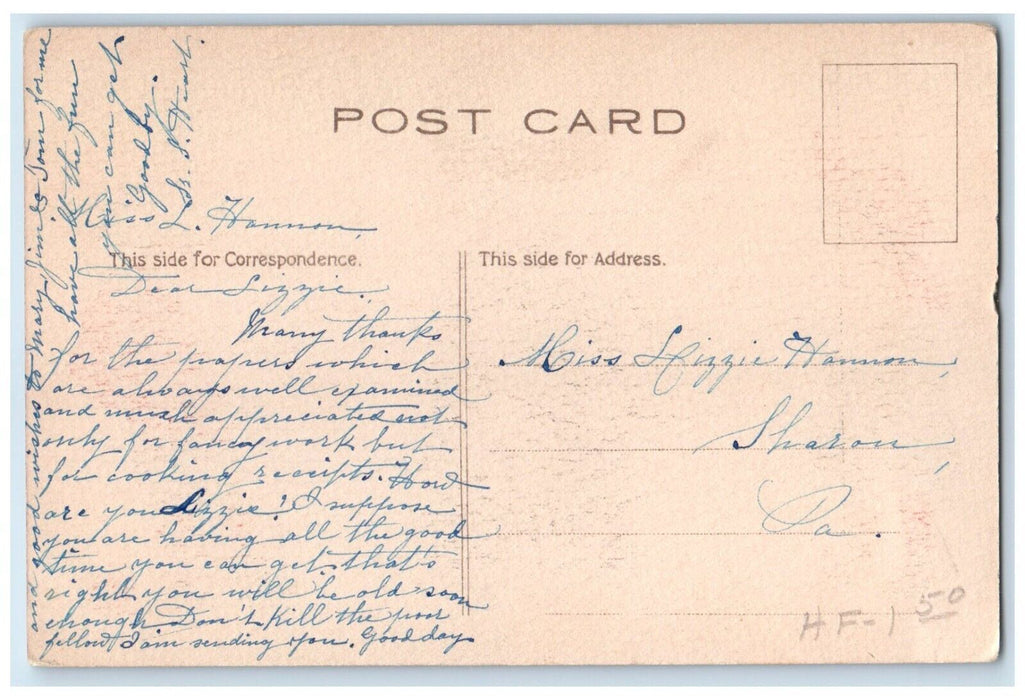 POST CARD
Miss L. Hannon,
This side for Correspondence.
Dear Lizzie,
Many thanks
for the papers which
are always well examined
and much appreciated not
only for fancy work but
for cooking receipts. How
are you Lizzie? I suppose
you are having all the good
time you can get that's
right you will be old soon
enough Don't kill the poor
fellow I am sending you. Good day
and good wishes to Mary Jim & Tom for me
have all the fun
you can get
Goodby.
Sr. S. Heart.
This side for Address.
Miss Lizzie Hannon,
Sharon,
Pa.
HF-1 50